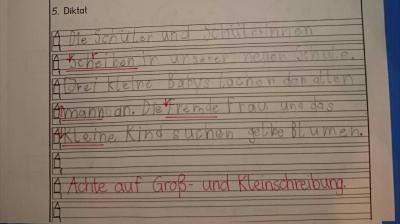 5. Diktat
Die Schüler und Schülerinnen
schreiben in unserer neuen Schule.
Drei kleine Babys lachen den alten
mann an. Die Fremde Frau und das
Kleine Kind suchen gelbe Blumen.
Achte auf Groß- und Kleinschreibung.